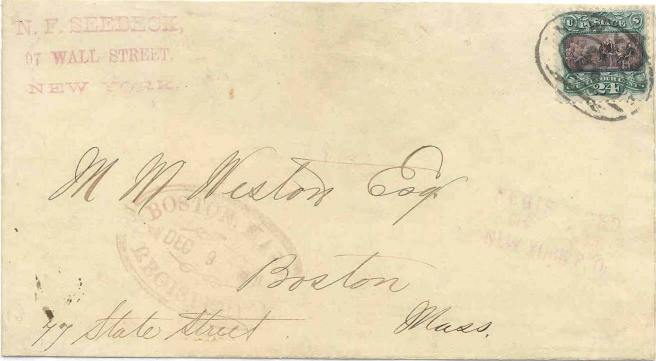 N. F. SEEBECK,
97 WALL STREET,
NEW YORK.
U S
POSTAGE
24
M M Weston Esq.
BOSTON,
DEC 9
REGISTERED
NEW YORK P. O.
Boston
47 State Street
Mass.